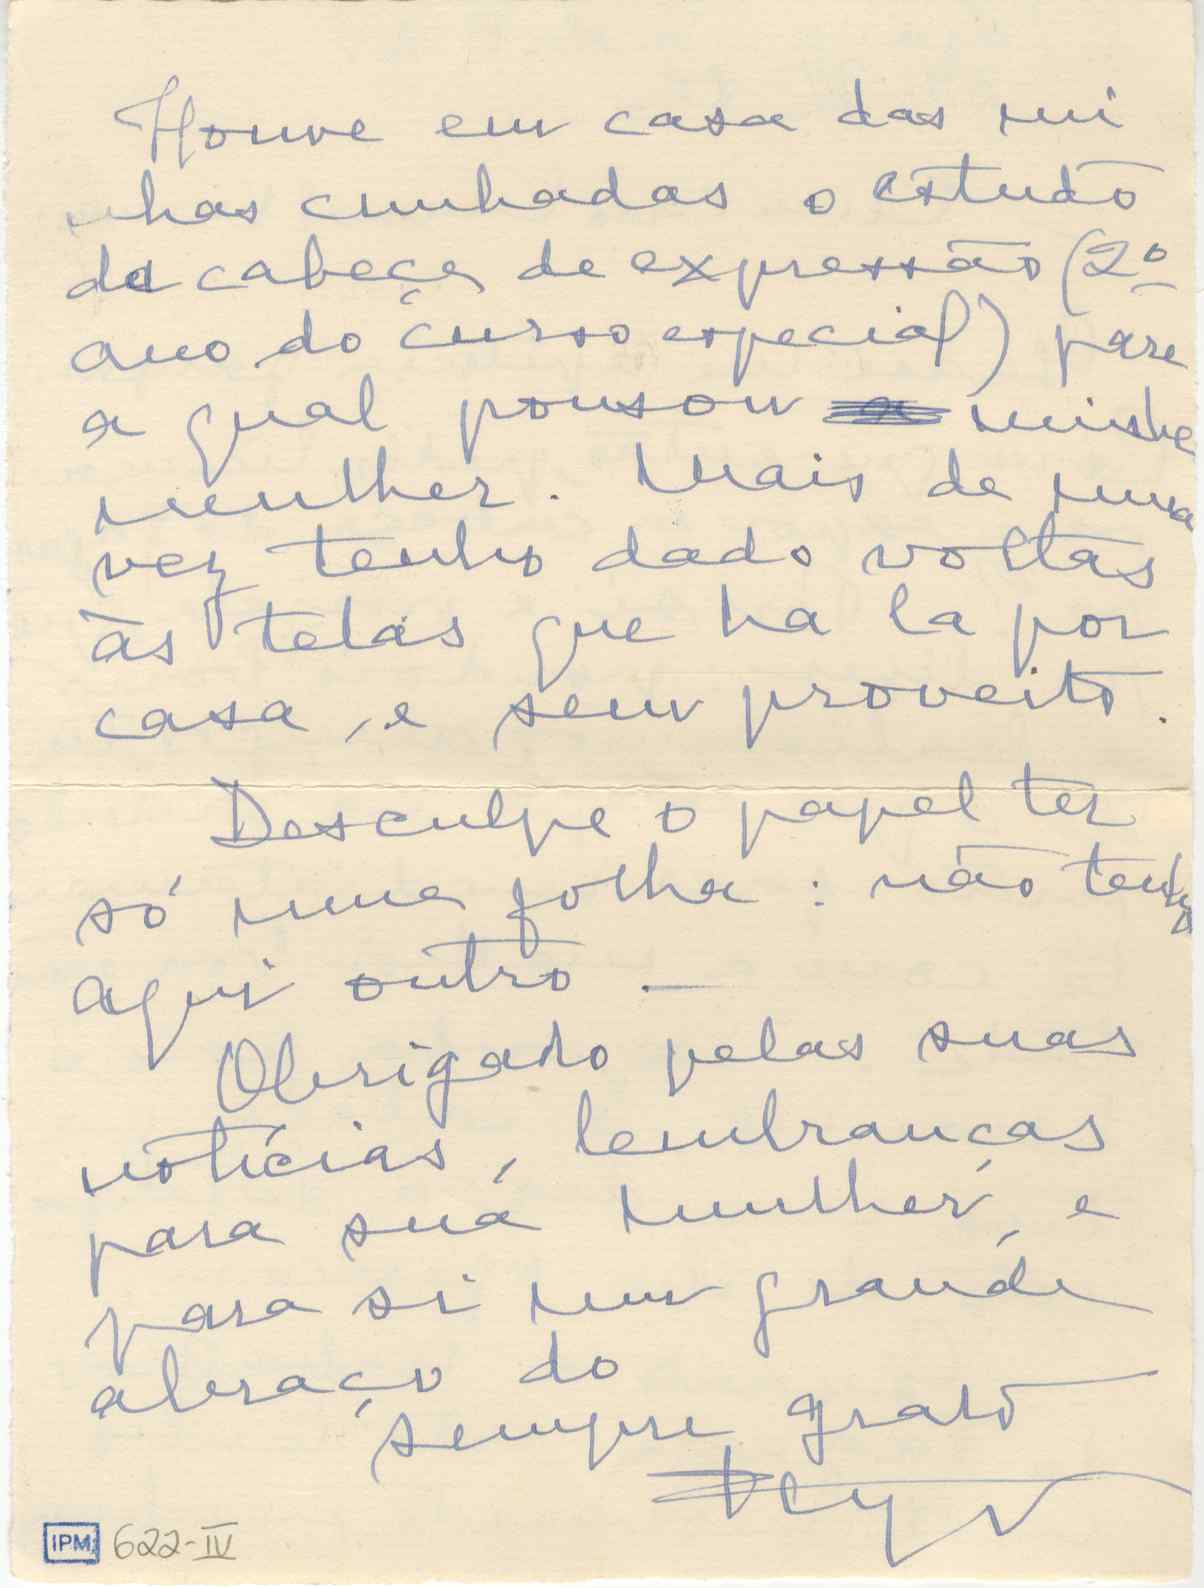 Houve em casa das mi
nhas cunhadas o estudo
da cabeça de expressão (2º
ano do curso especial) para
a qual pousou minha
mulher. Mais de uma
vez tenho dado voltas
às telas que ha la por
casa, e sem proveito.
Desculpe o papel ter
só uma folha: não tenho
aqui outro. —
Obrigado pelas suas
notícias, lembranças
para sua mulher, e
para si um grande
abraço do
sempre grato
IPM 622-IV